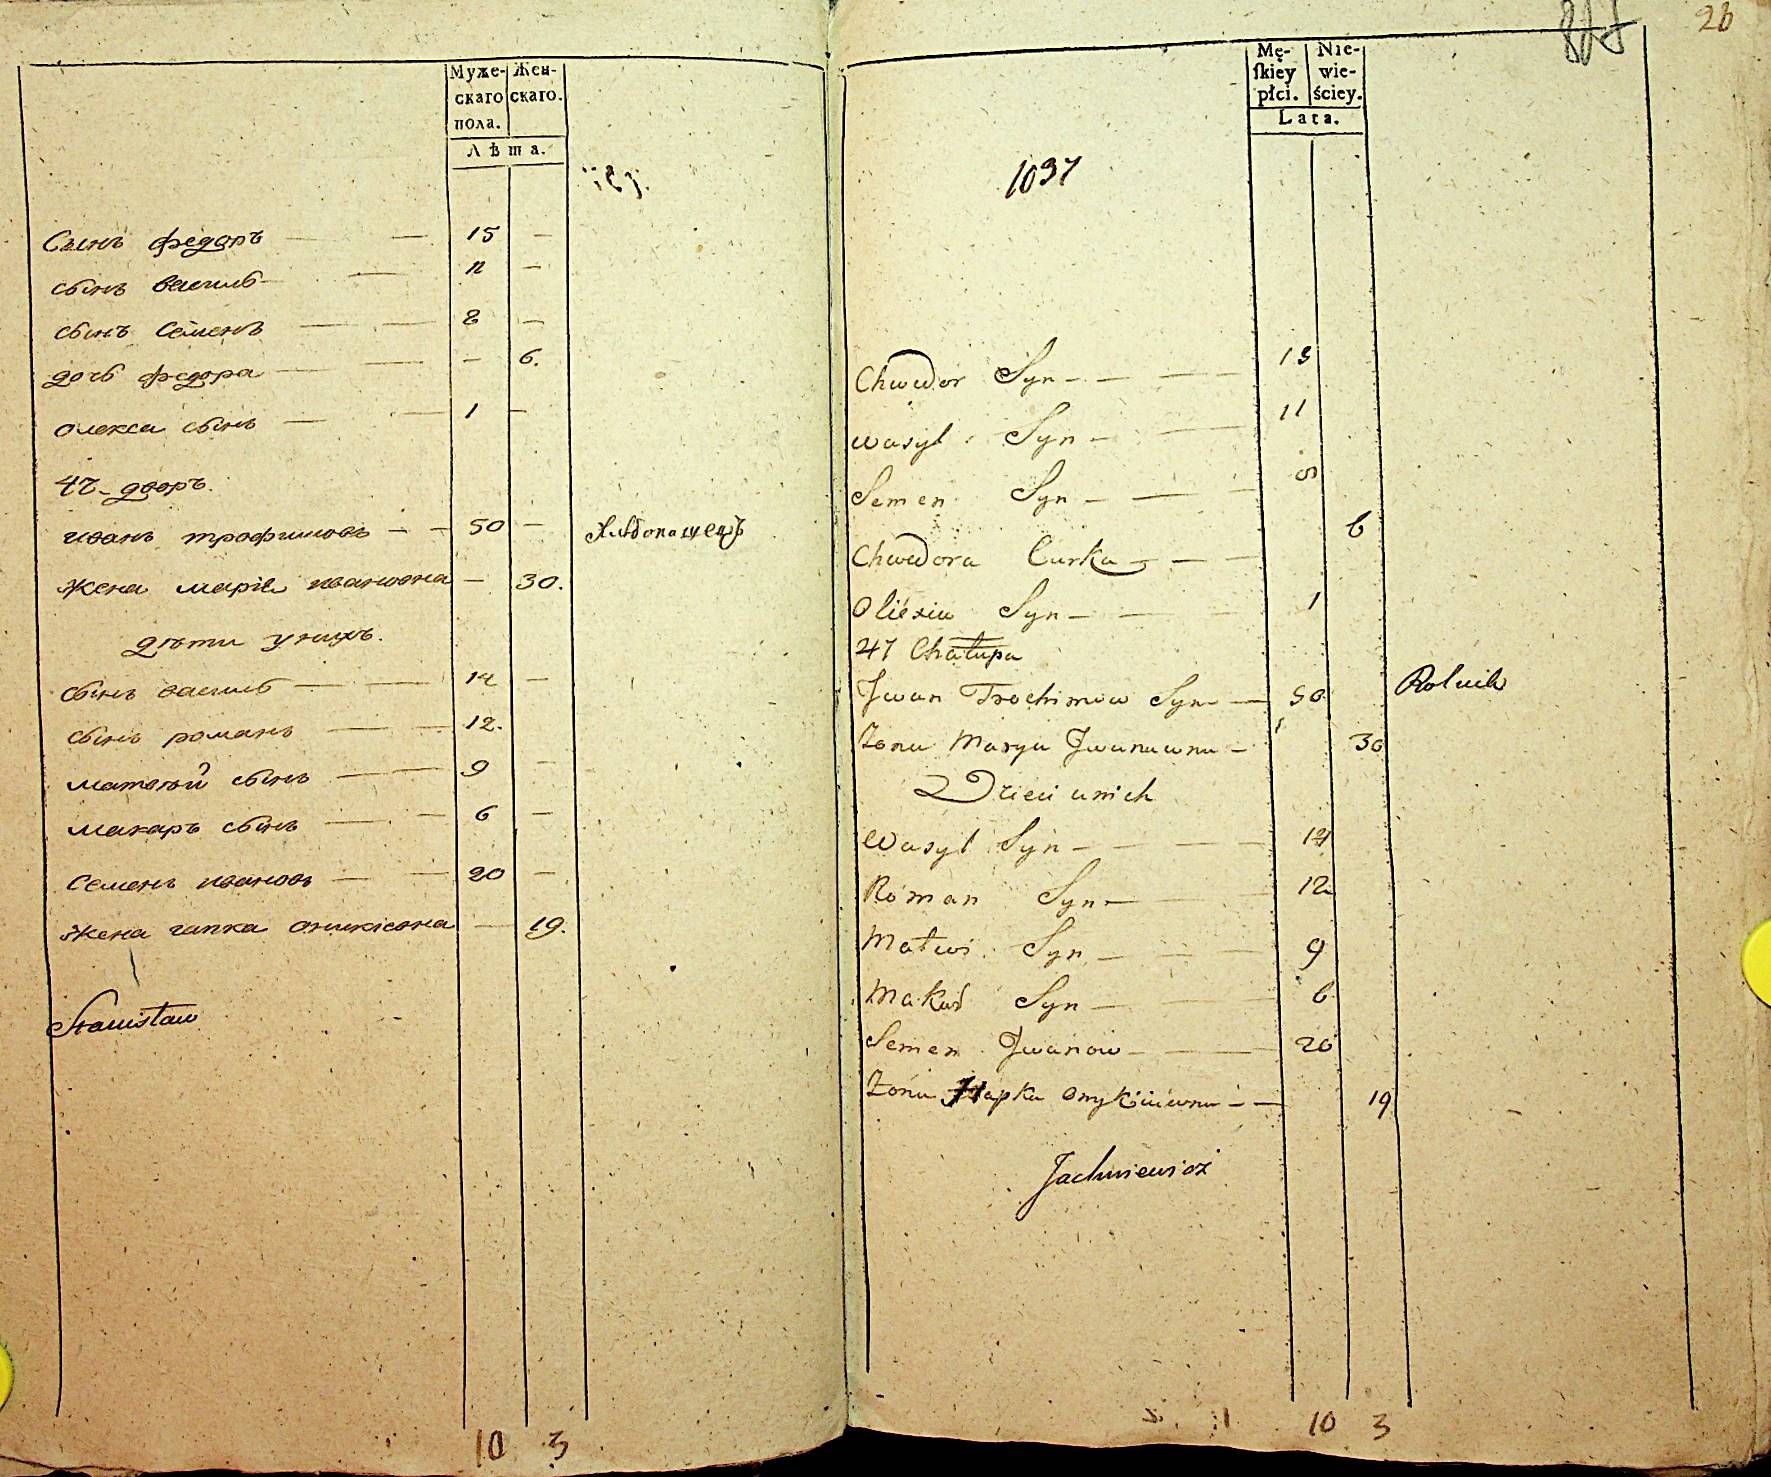 Муже- Жен-
скаго скаго.
пола.
Лѣта.
Сынъ федоръ 15 —
сынъ василь 11 —
сынъ Семенъ 8 —
дочь федора — 6.
олекса сынъ 1 —
47-дворъ.
иванъ трофимовъ 50 — Хлѣбопашецъ
жена марія ивановна — 30.
дѣти унихъ.
сынъ василь 14 —
сынъ романъ 12.
матвѣй сынъ 9 —
макаръ сынъ 6 —
Семенъ ивановъ 20 —
жена гапка оникіевна — 19.
Stanisław
10 3
26
Mę- Nie-
skiey wie-
płci. ściey.
Lata.
1037
Chwedor Syn 15
Wasyl Syn 11
Semen Syn 8
Chwedora Curka 6
Oliexia Syn 1
47 Chałupa
Jwan Trochimow Syn 50 Rolnik
Żona Marya Jwanawna 30
Dzieci unich
Wasyl Syn 14
Roman Syn 12
Matwi Syn 9
Makar Syn 6
Semen Jwanow 20
Żona Hapka Onykiiawna 19
Jachniewicz
10 3